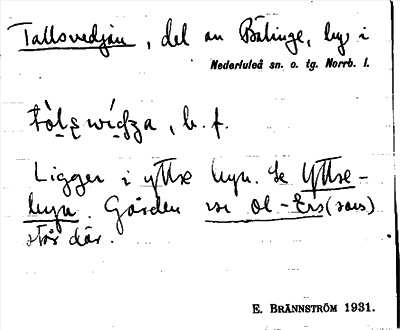 Tallsvedjan, del av Bälinge, by i
Nederluleå sn. o. tg. Norrb. l.
b. f.
Ligger i yttre byn. Se Yttre-
byn. Gården ol-Ers (sons)
står där.
E. BRÄNNSTRÖM 1931.